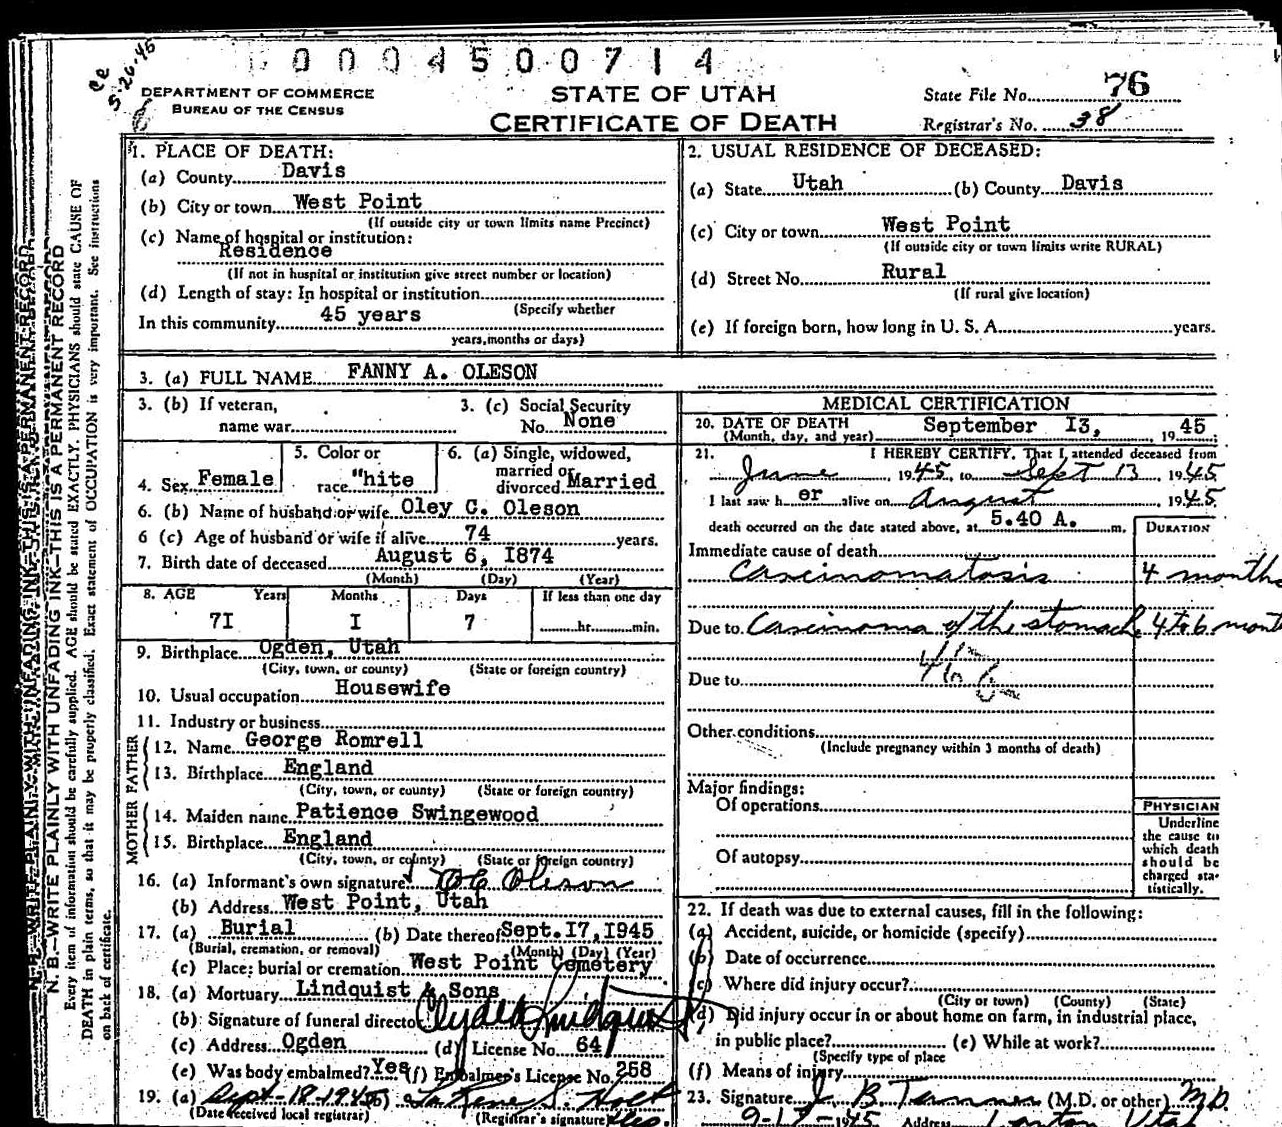 ce
5-26-45
0004500714
DEPARTMENT OF COMMERCE
BUREAU OF THE CENSUS
STATE OF UTAH
CERTIFICATE OF DEATH
State File No. 76
Registrar's No. 38
N. B.—WRITE PLAINLY WITH UNFADING INK—THIS IS A PERMANENT RECORD
Every item of information should be carefully supplied. AGE should be stated EXACTLY. PHYSICIANS should state CAUSE OF
DEATH in plain terms, so that it may be properly classified. Exact statement of OCCUPATION is very important. See instructions
on back of certificate.
1. PLACE OF DEATH:
(a) County Davis
(b) City or town West Point
(If outside city or town limits name Precinct)
(c) Name of hospital or institution:
Residence
(If not in hospital or institution give street number or location)
(d) Length of stay: In hospital or institution
(Specify whether
In this community 45 years
years, months or days)
2. USUAL RESIDENCE OF DECEASED:
(a) State Utah (b) County Davis
(c) City or town West Point
(If outside city or town limits write RURAL)
(d) Street No. Rural
(If rural give location)
(e) If foreign born, how long in U. S. A. years.
3. (a) FULL NAME FANNY A. OLESON
3. (b) If veteran,
name war
3. (c) Social Security
No. None
4. Sex Female
5. Color or
race "hite
6. (a) Single, widowed,
married or
divorced Married
6. (b) Name of husband or wife Oley C. Oleson
6 (c) Age of husband or wife if alive 74 years.
7. Birth date of deceased August 6, I874
(Month) (Day) (Year)
8. AGE Years Months Days If less than one day
7I I 7 hr. min.
9. Birthplace Ogden, Utah
(City, town, or county) (State or foreign country)
10. Usual occupation Housewife
11. Industry or business
FATHER
12. Name George Romrell
13. Birthplace England
(City, town, or county) (State or foreign country)
MOTHER
14. Maiden name Patience Swingewood
15. Birthplace England
(City, town, or county) (State or foreign country)
16. (a) Informant's own signature O C Oleson
(b) Address West Point, Utah
17. (a) Burial (b) Date thereof Sept. I7, I945
(Burial, cremation, or removal) (Month) (Day) (Year)
(c) Place: burial or cremation West Point Cemetery
18. (a) Mortuary Lindquist & Sons
(b) Signature of funeral director Clyde Lindquist
(c) Address Ogden (d) License No. 64
(e) Was body embalmed? Yes (f) Embalmer's License No. 258
19. (a) Sept-18-1945
(Date received local registrar) (Registrar's signature)
MEDICAL CERTIFICATION
20. DATE OF DEATH September I3, 19 45
(Month, day, and year)
21. I HEREBY CERTIFY, That I attended deceased from
June 1945, to Sept 13, 1945
I last saw h er alive on August 1945
death occurred on the date stated above, at 5.40 A. m.
DURATION
Immediate cause of death
Carcinomatosis 4 months
Due to Carcinoma of the stomach 4 to 6 mont
Due to
46b
Other conditions
(Include pregnancy within 3 months of death)
Major findings:
Of operations
Of autopsy
PHYSICIAN
Underline
the cause to
which death
should be
charged sta-
tistically.
22. If death was due to external causes, fill in the following:
(a) Accident, suicide, or homicide (specify)
(b) Date of occurrence
(c) Where did injury occur?
(City or town) (County) (State)
(d) Did injury occur in or about home on farm, in industrial place,
in public place? (e) While at work?
(Specify type of place
(f) Means of injury
23. Signature J. B. Tanner (M.D. or other) M.D.
9-17-1945 Address Layton Utah